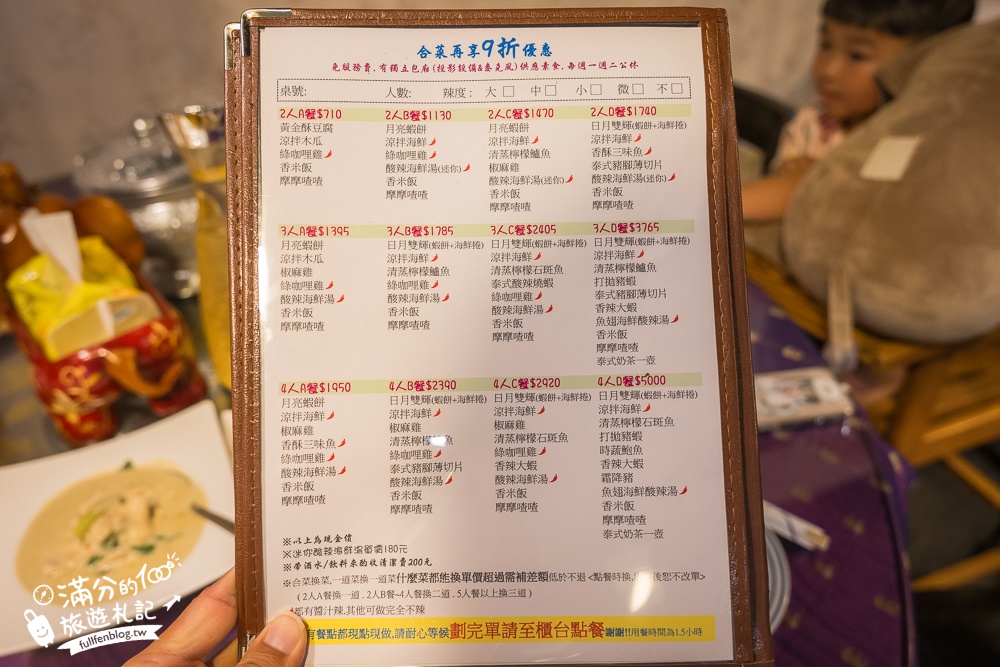 合菜再享9折優惠
免服務費.有獨立包廂(投影設備&麥克風)供應素食.每週一週二公休
桌號: 人數: 辣度: 大□ 中□ 小□ 微□ 不□
2人A餐$710
黃金酥豆腐
涼拌木瓜
綠咖哩雞
香米飯
摩摩喳喳
2人B餐$1130
月亮蝦餅
涼拌海鮮
綠咖哩雞
酸辣海鮮湯(迷你)
香米飯
摩摩喳喳
2人C餐$1470
月亮蝦餅
涼拌海鮮
清蒸檸檬鱸魚
椒麻雞
酸辣海鮮湯(迷你)
香米飯
摩摩喳喳
2人D餐$1740
日月雙輝(蝦餅+海鮮捲)
涼拌海鮮
香酥三味魚
泰式豬腳薄切片
酸辣海鮮湯(迷你)
香米飯
摩摩喳喳
3人A餐$1395
月亮蝦餅
涼拌木瓜
椒麻雞
綠咖哩雞
酸辣海鮮湯
香米飯
摩摩喳喳
3人B餐$1785
日月雙輝(蝦餅+海鮮捲)
涼拌海鮮
清蒸檸檬鱸魚
綠咖哩雞
酸辣海鮮湯
香米飯
摩摩喳喳
3人C餐$2405
日月雙輝(蝦餅+海鮮捲)
涼拌海鮮
清蒸檸檬石斑魚
泰式酸辣燒蝦
綠咖哩雞
酸辣海鮮湯
香米飯
摩摩喳喳
3人D餐$3765
日月雙輝(蝦餅+海鮮捲)
涼拌海鮮
清蒸檸檬鱸魚
打拋豬蝦
泰式豬腳薄切片
香辣大蝦
魚翅海鮮酸辣湯
香米飯
摩摩喳喳
泰式奶茶一壺
4人A餐$1950
月亮蝦餅
涼拌海鮮
椒麻雞
香酥三味魚
綠咖哩雞
酸辣海鮮湯
香米飯
摩摩喳喳
4人B餐$2390
日月雙輝(蝦餅+海鮮捲)
涼拌海鮮
椒麻雞
清蒸檸檬魚
綠咖哩雞
泰式豬腳薄切片
酸辣海鮮湯
香米飯
摩摩喳喳
4人C餐$2920
日月雙輝(蝦餅+海鮮捲)
涼拌海鮮
椒麻雞
清蒸檸檬石斑魚
綠咖哩雞
香辣大蝦
酸辣海鮮湯
香米飯
摩摩喳喳
4人D餐$5000
日月雙輝(蝦餅+海鮮捲)
涼拌海鮮
清蒸檸檬石斑魚
打拋豬蝦
時蔬鮑魚
香辣大蝦
霜降豬
魚翅海鮮酸辣湯
香米飯
摩摩喳喳
泰式奶茶一壺
※以上為現金價
※迷你酸辣海鮮湯單價180元
※帶酒水/飲料來酌收清潔費200元
※合菜換菜,一道菜換一道菜什麼菜都能換單價超過需補差額低於不退<點餐時換,後恕不改單>
(2人A餐換一道.2人B餐~4人餐換二道.5人餐以上換三道)
都有醬汁辣.其他可做完全不辣
有餐點都現點現做,請耐心等候劃完單請至櫃台點餐謝謝!!用餐時間為1.5小時
滿分的100
旅遊札記
fullfenblog.tw